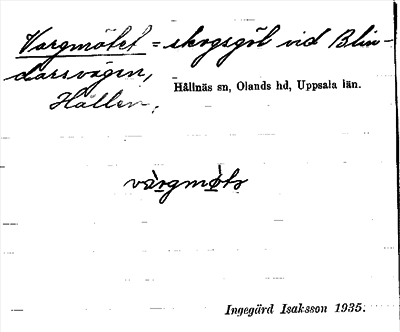 Vargmötet = skogsgöl vid Blin-
darsvägen,
Hållnäs sn, Olands hd, Uppsala län.
Hällen.
Ingegärd Isaksson 1935.